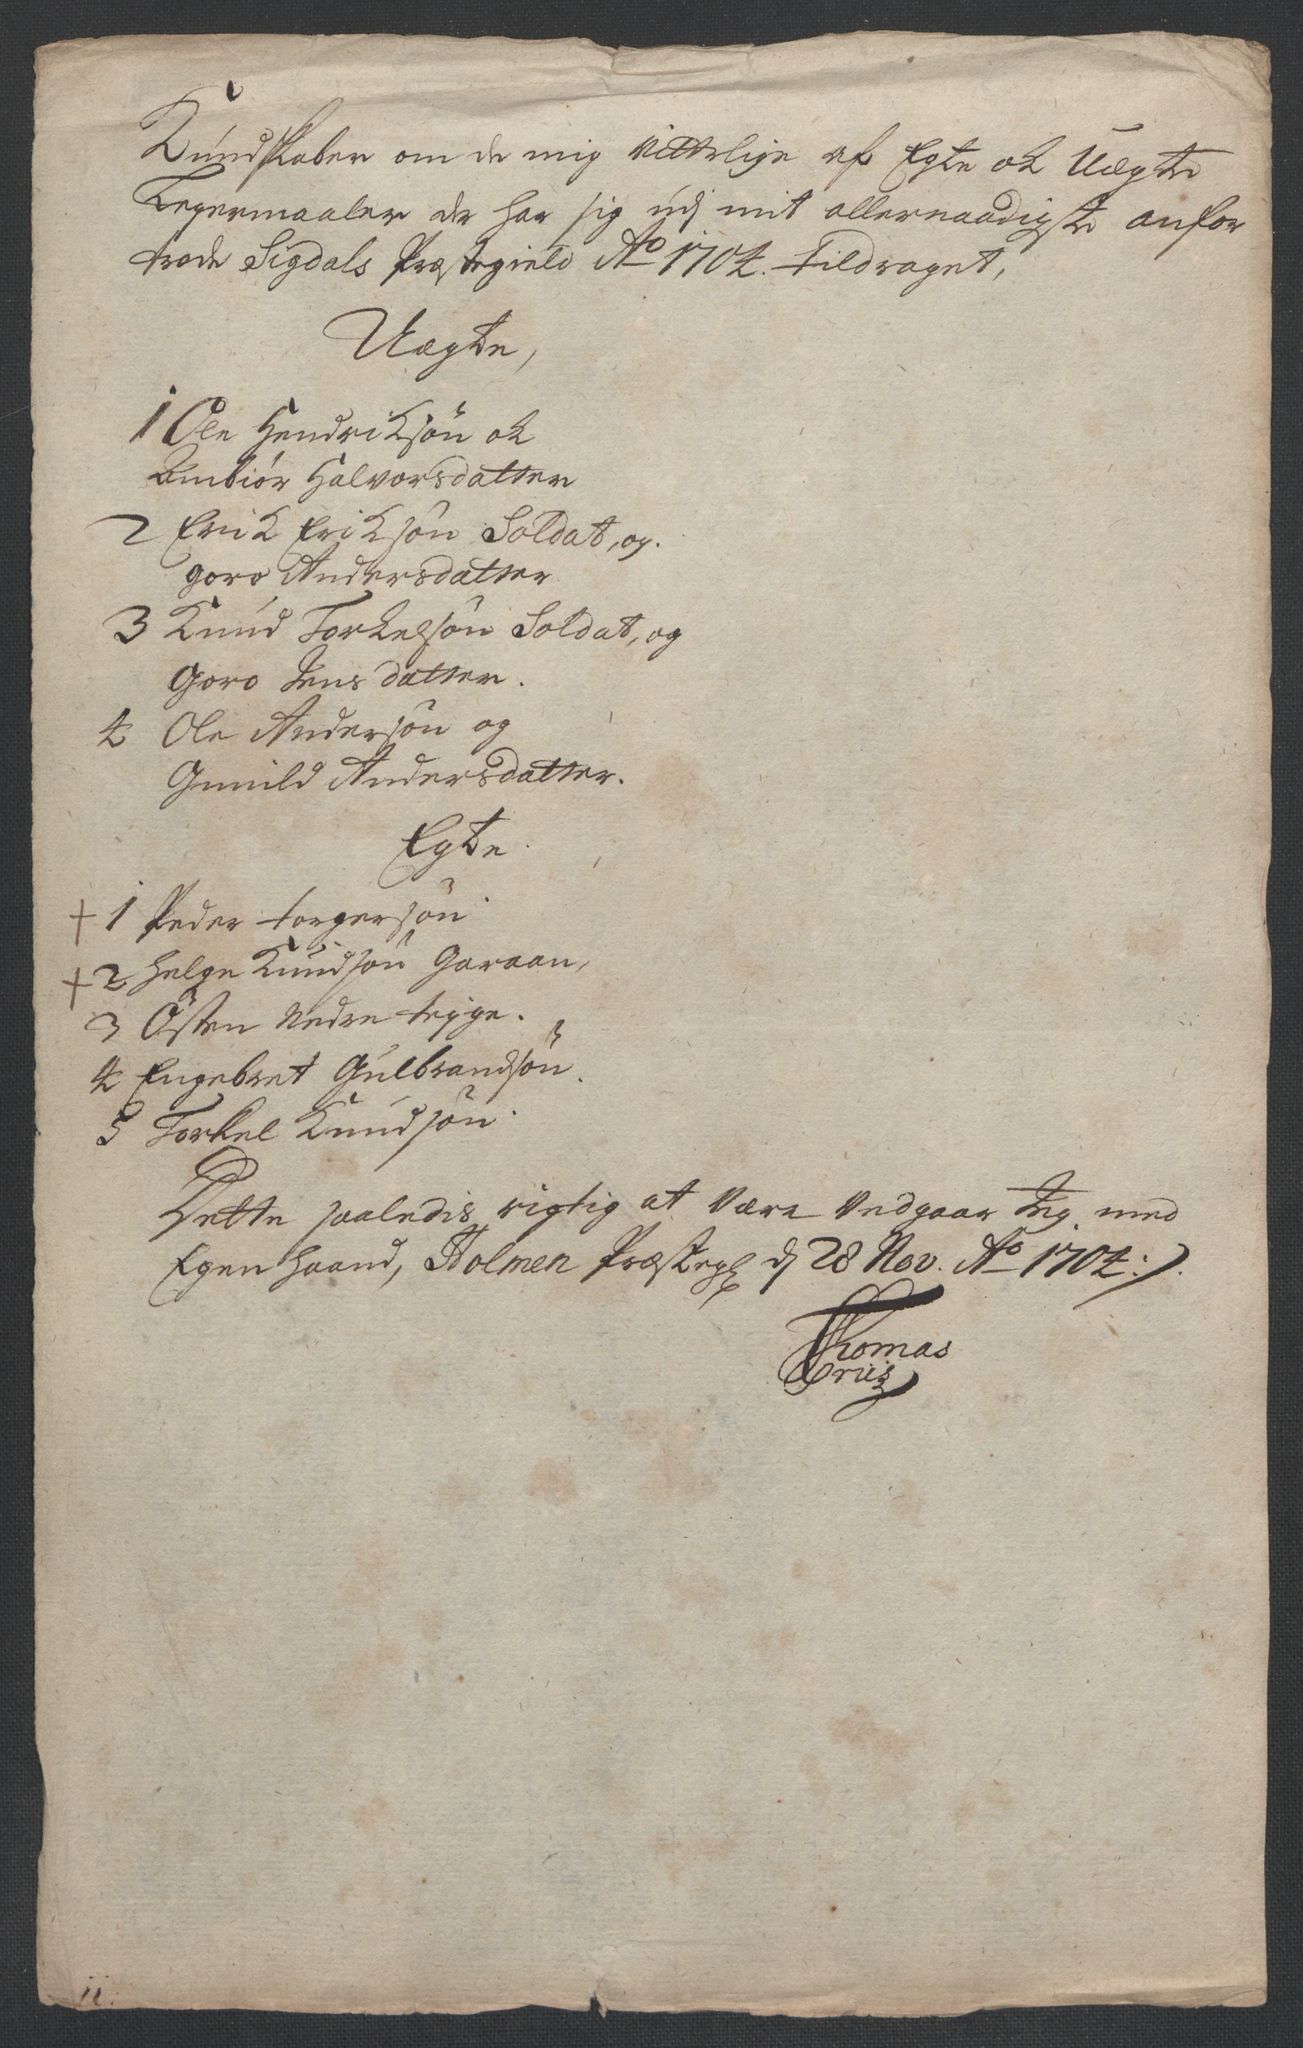 Kundskaber om de mig Vitterlige af Egte ok Uægte
Legermaaler der har sig udj mit allernaadigste anfor
trode Sigdals Præstegield Ao 1704. tildraget,
Uægte,
1 Ole Hendriksøn ok
Embiør Halvorsdatter
2 Erik Eriksøn Soldat, og.
goro Andersdatter
3 Knud Torkelsøn Soldat, og
Goro Jensdatter.
4 Ole Andersøn og
Gunild Andersdatter.
Egte.
+ 1 Peder torgersøn.
+ 2 Helge Knudsøn Garaan,
3 Østen Nedre
4 Engebret Gulbrandsøn.
5 Torkel Knudsøn.
Dette saaledis rigtig at Være Vedgaar Jeg med
Egen haand, Holmen Præstegl dj 28 Nov. Ao 1704:/.
Thomas
11.